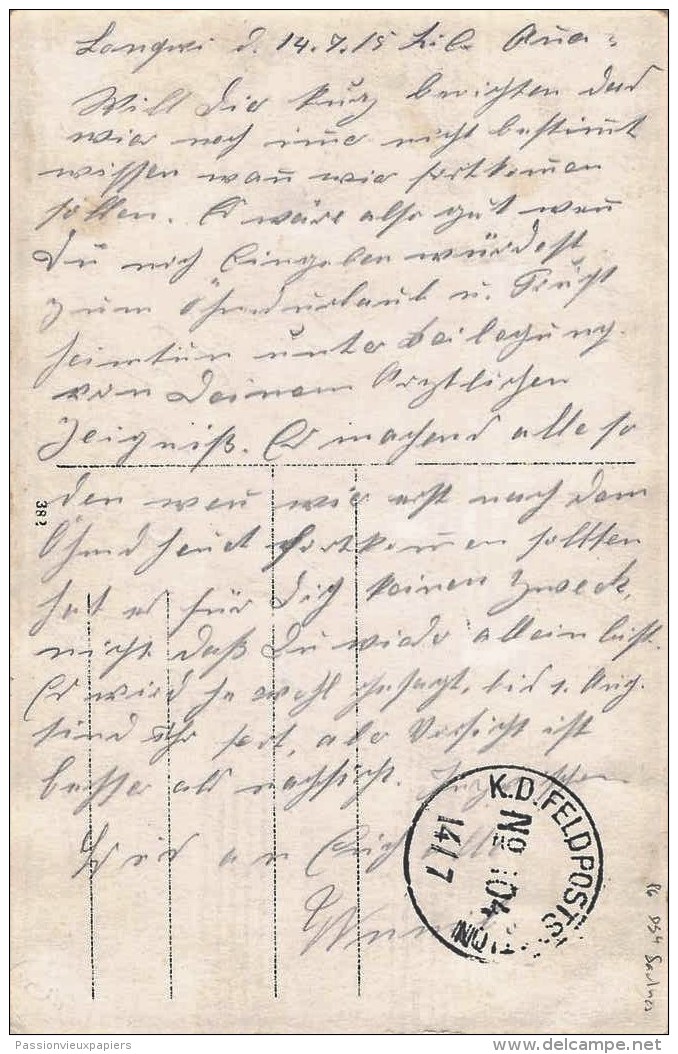 Longwi d. 14.7.15 Lib.
Will Dir kurz berichten das
wir noch imer nicht bestimt
wissen wan wir fortkomen
sollen. Es wäre also gut wen
Du mich Eingeben würdest
zum Öhmdurlaub u.
unter Beilegung
von Deinem Arztlichen
Zeigniß. Es machens alle so
den wan wir erst nach dem
fortkomen sollten
hat es für Dich keinen Zweck,
nicht daß Du wieder allein bist.
Es wird ja wohl gesagt, bis 1. Aug.
sind wir fort, aber Vorsicht ist
besser als nachsicht.
an Euch alle
K.D. FELDPOSTSTATION
No 104
14/7
382
Passionvieuxpapiers
delcampe.net